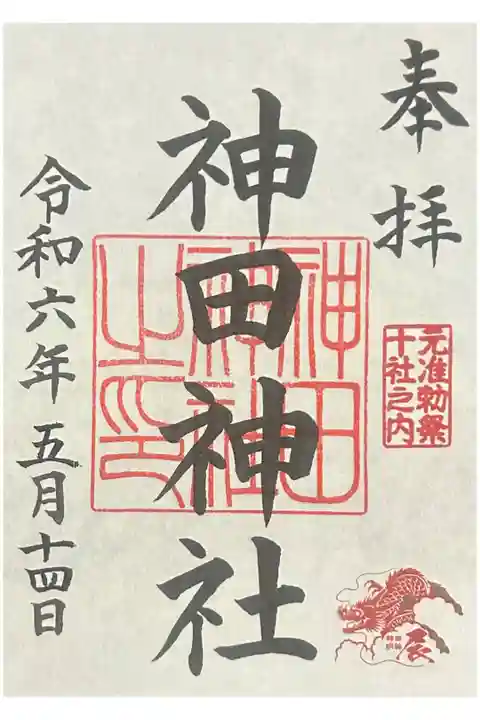 奉拝
元准勅祭
十社之内
辰
神田神社
神田
神社
之印
令和六年五月十四日